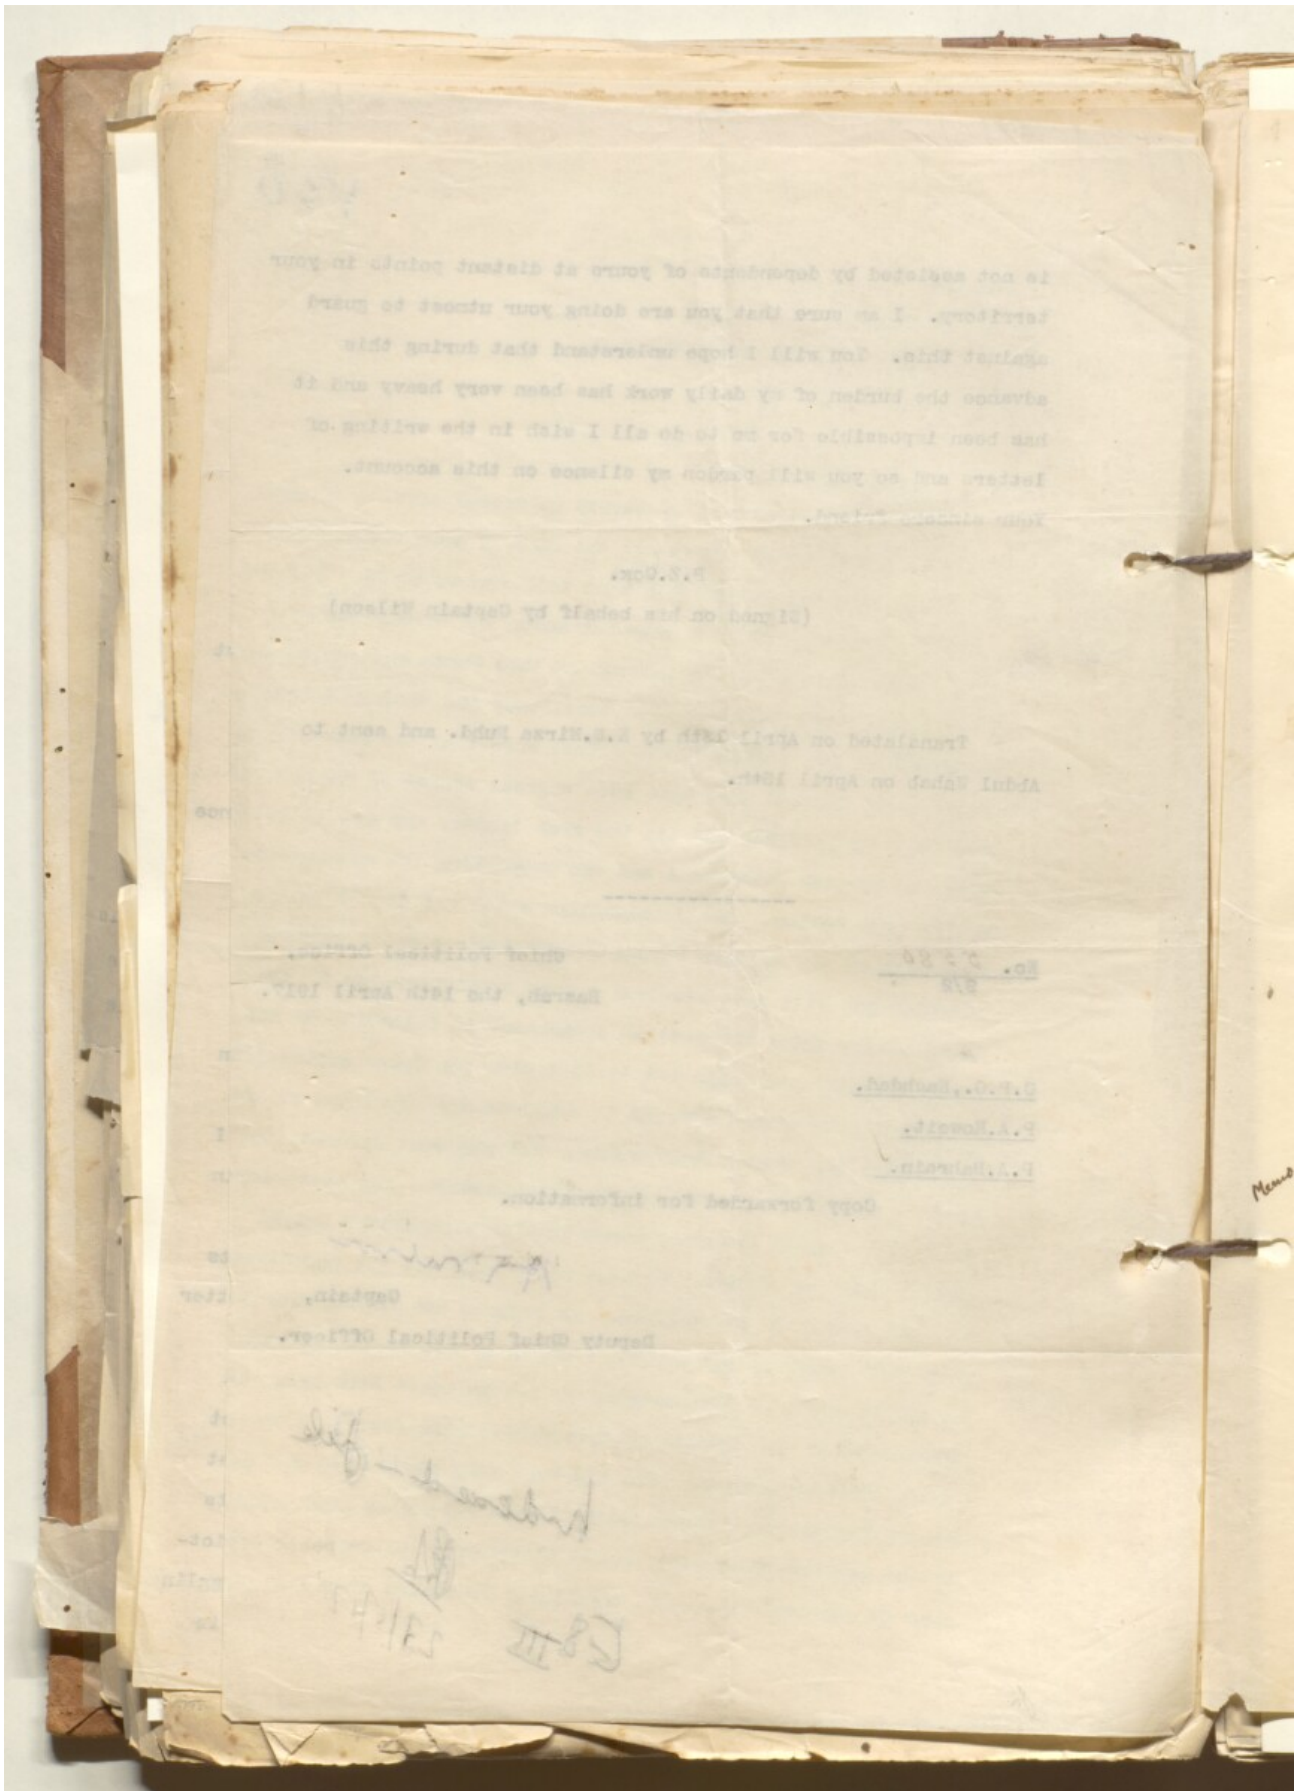 is not assisted by dependants of yours at distant points in your
territory. I am sure that you are doing your utmost to guard
against this. You will I hope understand that during this
advance the burden of my daily work has been very heavy and it
has been impossible for me to do all I wish in the writing of
letters and so you will pardon my silence on this account.
Your sincere friend.
P.Z.Cox.
(Signed on his behalf by Captain Wilson)
Translated on April by Mirza Muhd. and sent to
Abdul Wahab on April 15th.
-----------------
No.
9/2
Chief Political Office,
Basrah, the 14th April 1917.
C.P.O., Baghdad.
P.A.Koweit.
P.A.Bahrain.
Copy forwarded for information.
Captain,
Deputy Chief Political Officer.
file
Indexed
E8 III
Memo